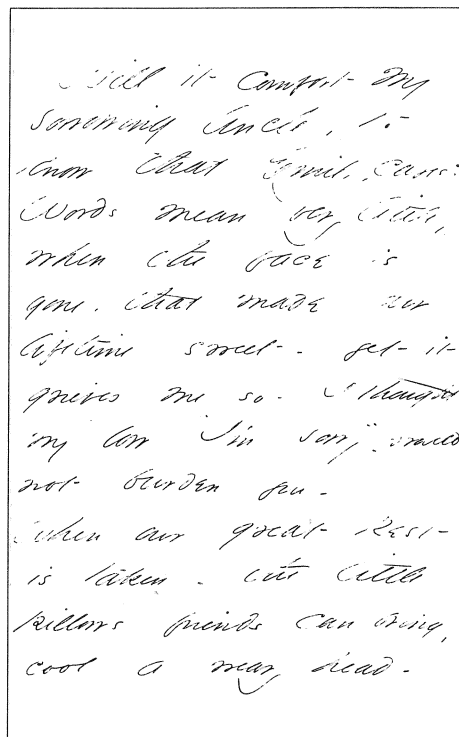 Will it comfort my
sorrowing Uncle, to
know that Emily cares:
Words mean very little,
when the face is
gone. that made our
lifetime sweet - yet it
grieves me so - I thought
my low "I'm sorry" would
not burden you -
When our great Rest
is taken - the little
pillows friends can bring,
cool a weary head -